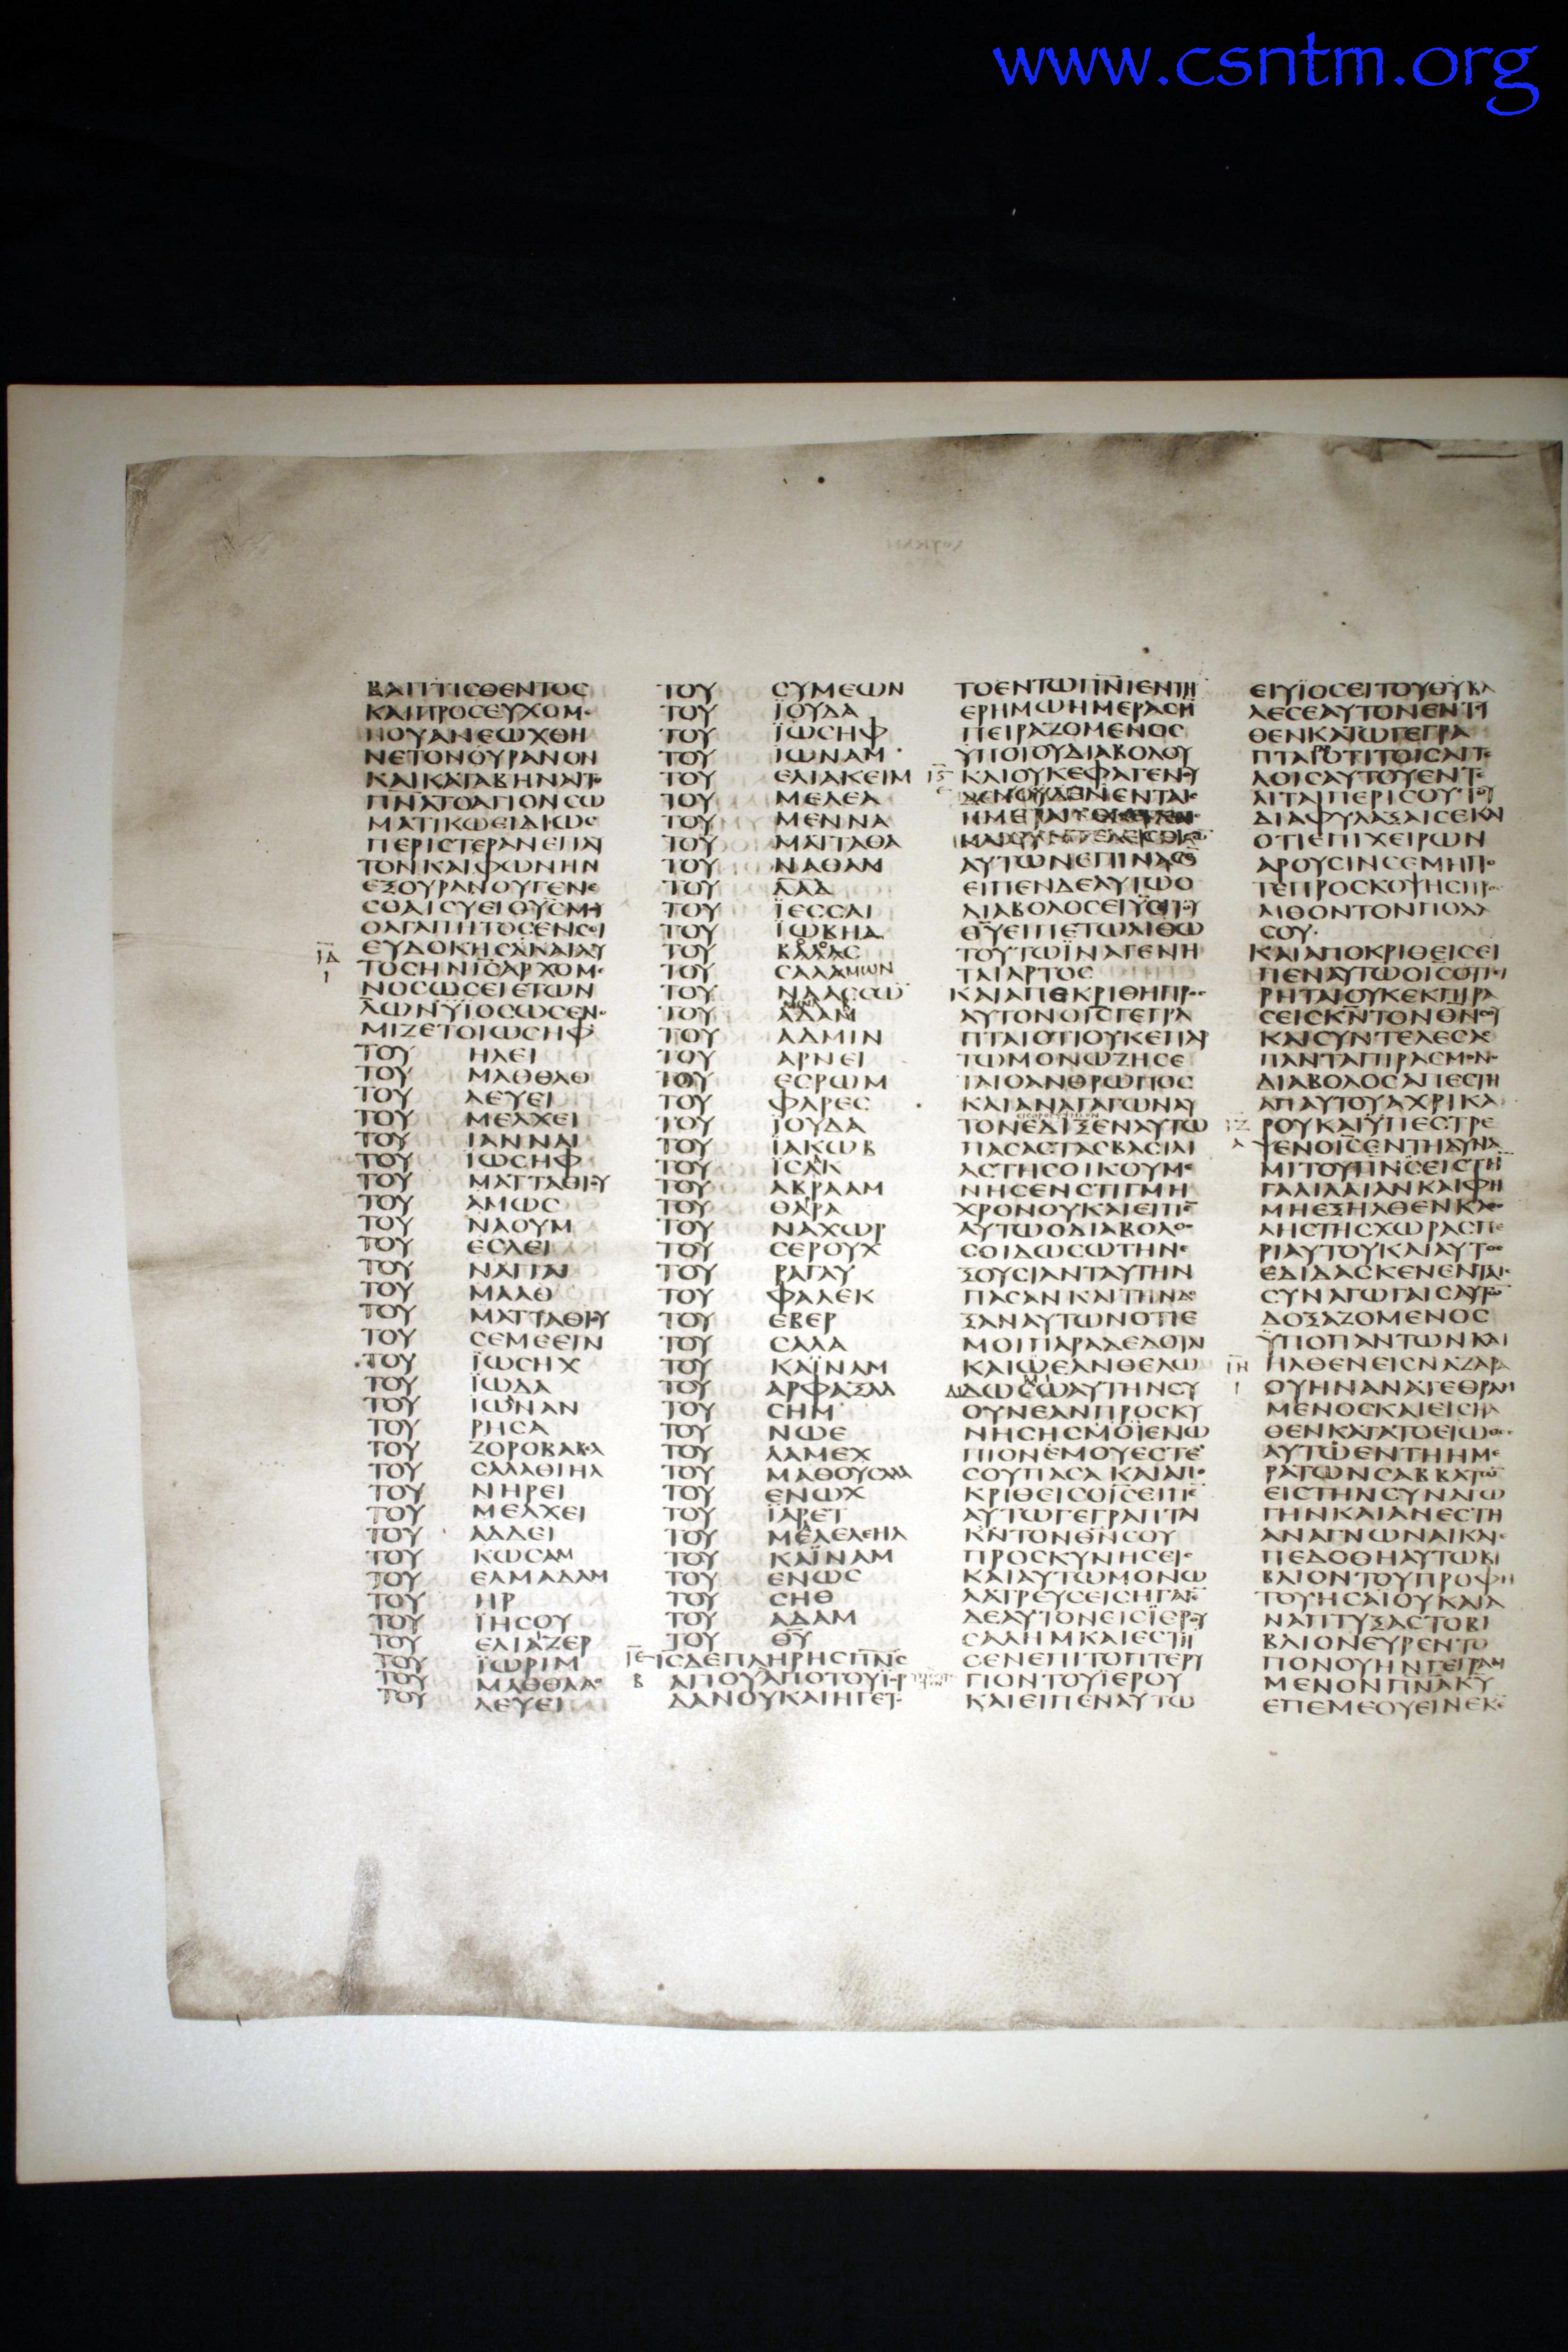 www.csntm.org
ΒΑΠΤΙCΘΕΝΤΟC
ΚΑΙΠΡΟCΕΥΧΟΜΕ
ΝΟΥΑΝΕΩΧΘΗ
ΝΕΤΟΝΟΥΡΑΝΟΝ
ΚΑΙΚΑΤΑΒΗΝΑΙΤΟ
ΠΝΑΤΟΑΓΙΟΝCΩ
ΜΑΤΙΚΩΕΙΔΙΩC
ΠΕΡΙCΤΕΡΑΝΕΠΑΥ
ΤΟΝΚΑΙΦΩΝΗΝ
ΕΞΟΥΡΑΝΟΥΓΕΝΕ
CΘΑΙCΥΕΙΟΥCΜΟΥ
ΟΑΓΑΠΗΤΟCΕΝCΟΙ
ΕΥΔΟΚΗCΑΚΑΙΑΥ
ΙΔ
Ι
ΤΟCΗΝΙCΑΡΧΟΜΕ
ΝΟCΩCΕΙΕΤΩΝ
ΛΩΝΥΪΟCΩCΕΝΟ
ΜΙΖΕΤΟΙΩCΗΦ
ΤΟΥ ΗΛΕΙ
ΤΟΥ ΜΑΘΘΑΘ
ΤΟΥ ΛΕΥΕΙ
ΤΟΥ ΜΕΛΧΕΙ
ΤΟΥ ΙΑΝΝΑΙ
ΤΟΥ ΙΩCΗΦ
ΤΟΥ ΜΑΤΤΑΘΙΟΥ
ΤΟΥ ΑΜΩC
ΤΟΥ ΝΑΟΥΜ
ΤΟΥ ΕCΛΕΙ
ΤΟΥ ΝΑΓΓΑΙ
ΤΟΥ ΜΑΑΘ
ΤΟΥ ΜΑΤΤΑΘΙΟΥ
ΤΟΥ CΕΜΕΕΙΝ
ΤΟΥ ΪΩCΗΧ
ΤΟΥ ΪΩΔΑ
ΤΟΥ ΙΩΝΑΝ
ΤΟΥ ΡΗCΑ
ΤΟΥ ΖΟΡΟΒΑΒΕΛ
ΤΟΥ CΑΛΑΘΙΗΛ
ΤΟΥ ΝΗΡΕΙ
ΤΟΥ ΜΕΛΧΕΙ
ΤΟΥ ΑΔΔΕΙ
ΤΟΥ ΚΩCΑΜ
ΤΟΥ ΕΛΜΑΔΑΜ
ΤΟΥ ΗΡ
ΤΟΥ ΪΗCΟΥ
ΤΟΥ ΕΛΙΑΖΕΡ
ΤΟΥ ΪΩΡΙΜ
ΤΟΥ ΜΑΘΘΑΑΘ
ΤΟΥ ΛΕΥΕΙ
ΤΟΥ CΥΜΕΩΝ
ΤΟΥ ΪΟΥΔΑ
ΤΟΥ ΪΩCΗΦ
ΤΟΥ ΪΩΝΑΜ
ΤΟΥ ΕΛΙΑΚΕΙΜ
ΤΟΥ ΜΕΛΕΑ
ΤΟΥ ΜΕΝΝΑ
ΤΟΥ ΜΑΤΤΑΘΑ
ΤΟΥ ΝΑΘΑΜ
ΤΟΥ ΔΑΔ
ΤΟΥ ΪΕCCΑΙ
ΤΟΥ ΪΩΒΗΛ
ΤΟΥ
ΤΟΥ CΑΛΑΜΩΝ
ΤΟΥ ΝΑΑCCΩ
ΤΟΥ ΑΔΑΜ
ΤΟΥ ΑΔΜΙΝ
ΤΟΥ ΑΡΝΕΙ
ΤΟΥ ΕCΡΩΜ
ΤΟΥ ΦΑΡΕC
ΤΟΥ ΪΟΥΔΑ
ΤΟΥ ΪΑΚΩΒ
ΤΟΥ ΪCΑΚ
ΤΟΥ ΑΒΡΑΑΜ
ΤΟΥ ΘΑΡΑ
ΤΟΥ ΝΑΧΩΡ
ΤΟΥ CΕΡΟΥΧ
ΤΟΥ ΡΑΓΑΥ
ΤΟΥ ΦΑΛΕΚ
ΤΟΥ ΕΒΕΡ
ΤΟΥ CΑΛΑ
ΤΟΥ ΚΑΪΝΑΜ
ΤΟΥ ΑΡΦΑΞΑΔ
ΤΟΥ CΗΜ
ΤΟΥ ΝΩΕ
ΤΟΥ ΛΑΜΕΧ
ΤΟΥ ΜΑΘΟΥCΑΛΑ
ΤΟΥ ΕΝΩΧ
ΤΟΥ ΪΑΡΕΤ
ΤΟΥ ΜΕΛΕΛΕΗΛ
ΤΟΥ ΚΑΪΝΑΜ
ΤΟΥ ΕΝΩC
ΤΟΥ CΗΘ
ΤΟΥ ΑΔΑΜ
ΤΟΥ ΘΥ
ΙΕ
Β
ΙCΔΕΠΛΗΡΗCΠΝC
ΑΓΙΟΥΑΠΟΤΟΥΪΟΡ
ΔΑΝΟΥΚΑΙΗΓΕΤΟ
ΤΟΕΝΤΩΠΝΙΕΝΤΗ
ΕΡΗΜΩΗΜΕΡΑCΜ
ΠΕΙΡΑΖΟΜΕΝΟC
ΥΠΟΤΟΥΔΙΑΒΟΛΟΥ
ΙϚ
ΚΑΙΟΥΚΕΦΑΓΕΝΟΥ
ΔΕΝΕΝΤΑΙC
ΑΥΤΩΝΕΠΙΝΑCΕ
ΕΙΠΕΝΔΕΑΥΤΩΟ
ΔΙΑΒΟΛΟCΕΙΥCΙΤΟΥ
ΘΥΕΙΠΕΤΩΛΙΘΩ
ΤΟΥΤΩΪΝΑΓΕΝΗ
ΤΑΙΑΡΤΟC
ΚΑΙΑΠΕΚΡΙΘΗΠΡΟC
ΑΥΤΟΝΟΙCΓΕΓΡΑ
ΠΤΑΙΟΤΙΟΥΚΕΠΑΡ
ΤΩΜΟΝΩΖΗCΕ
ΤΑΙΟΑΝΘΡΩΠΟC
ΚΑΙΑΝΑΓΑΓΩΝΑΥ
ΤΟΝΕΔΙΞΕΝΑΥΤΩ
ΠΑCΑCΤΑCΒΑCΙΛΙ
ΑCΤΗCΟΙΚΟΥΜΕ
ΝΗCΕΝCΤΙΓΜΗ
ΧΡΟΝΟΥΚΑΙΕΙΠΕ
ΑΥΤΩΟΔΙΑΒΟΛΟC
CΟΙΔΩCΩΤΗΝΕ
ΞΟΥCΙΑΝΤΑΥΤΗΝ
ΠΑCΑΝΚΑΙΤΗΝΔΟ
ΞΑΝΑΥΤΩΝΟΤΙΕ
ΜΟΙΠΑΡΑΔΕΔΟΤΑΙ
ΚΑΙΩΕΑΝΘΕΛΩ
ΔΙΔΩCΩΑΥΤΗΝCΥ
ΟΥΝΕΑΝΠΡΟCΚΥ
ΝΗCΗCΜΟΙΕΝΩ
ΠΙΟΝΕΜΟΥΕCΤΕ
CΟΥΠΑCΑΚΑΙΑΠΟ
ΚΡΙΘΕΙCΟΙCΕΙΠΕ
ΑΥΤΩΓΕΓΡΑΠΤΑΙ
ΚΝΤΟΝΘΝCΟΥ
ΠΡΟCΚΥΝΗCΕΙC
ΚΑΙΑΥΤΩΜΟΝΩ
ΛΑΤΡΕΥCΕΙCΗΓΑΓΕ
ΔΕΑΥΤΟΝΕΙCΪΕΡΟΥ
CΑΛΗΜΚΑΙΕCΤΗ
CΕΝΕΠΙΤΟΠΤΕΡΥ
ΓΙΟΝΤΟΥΪΕΡΟΥ
ΚΑΙΕΙΠΕΝΑΥΤΩ
ΕΙΥΪΟCΕΙΤΟΥΘΥΒΑ
ΛΕCΕΑΥΤΟΝΕΝΤΕΥ
ΘΕΝΚΑΤΩΓΕΓΡΑ
ΠΤΑΙΓΟΤΙΤΟΙCΑΓΓΕ
ΛΟΙCΑΥΤΟΥΕΝΤΕ
ΛΙΤΑΙΠΕΡΙCΟΥΤΟΥ
ΔΙΑΦΥΛΑΞΑΙCΕΚΑΙ
ΟΤΙΕΠΙΧΕΙΡΩΝ
ΑΡΟΥCΙΝCΕΜΗΠΟ
ΤΕΠΡΟCΚΟΨΗCΠΡΟC
ΛΙΘΟΝΤΟΝΠΟΔΑ
CΟΥ
ΚΑΙΑΠΟΚΡΙΘΕΙCΕΙ
ΠΕΝΑΥΤΩΟΙCΟΤΙΕΙ
ΡΗΤΑΙΟΥΚΕΚΠΙΡΑ
CΕΙCΚΝΤΟΝΘΝCΟΥ
ΚΑΙCΥΝΤΕΛΕCΑC
ΠΑΝΤΑΠΙΡΑCΜΟΝΟ
ΔΙΑΒΟΛΟCΑΠΕCΤΗ
ΑΠΑΥΤΟΥΑΧΡΙΚΑΙ
ΙΖ
Α
ΡΟΥΚΑΙΥΠΕCΤΡΕ
ΨΕΝΟΙCΕΝΤΗΔΥΝΑ
ΜΙΤΟΥΠΝCΕΙCΤΗ
ΓΑΛΙΛΑΙΑΝΚΑΙΦΗ
ΜΗΕΞΗΛΘΕΝΚΑΘΟ
ΛΗCΤΗCΧΩΡΑCΠΕ
ΡΙΑΥΤΟΥΚΑΙΑΥΤΟC
ΕΔΙΔΑCΚΕΝΕΝΤΑΙC
CΥΝΑΓΩΓΑΙCΑΥΤΩ
ΔΟΞΑΖΟΜΕΝΟC
ΥΠΟΠΑΝΤΩΝΚΑΙ
ΙΗ
Ι
ΗΛΘΕΝΕΙCΝΑΖΑΡΑ
ΟΥΗΝΑΝΑΤΕΘΡΑΜ
ΜΕΝΟCΚΑΙΕΙCΗΛ
ΘΕΝΚΑΤΑΤΟΕΙΩΘΟC
ΑΥΤΩΕΝΤΗΗΜΕ
ΡΑΤΩΝCΑΒΒΑΤΩ
ΕΙCΤΗΝCΥΝΑΓΩ
ΓΗΝΚΑΙΑΝΕCΤΗ
ΑΝΑΓΝΩΝΑΙΚΑΙΕ
ΠΕΔΟΘΗΑΥΤΩΒΙ
ΒΛΙΟΝΤΟΥΠΡΟΦΗ
ΤΟΥΗCΑΪΟΥΚΑΙΑ
ΝΑΠΤΥΞΑCΤΟΒΙ
ΒΛΙΟΝΕΥΡΕΝΤΟ
ΠΟΝΟΥΗΝΓΕΓΡΑΜ
ΜΕΝΟΝΠΝΑΚΥ
ΕΠΕΜΕΟΥΕΙΝΕΚΕ